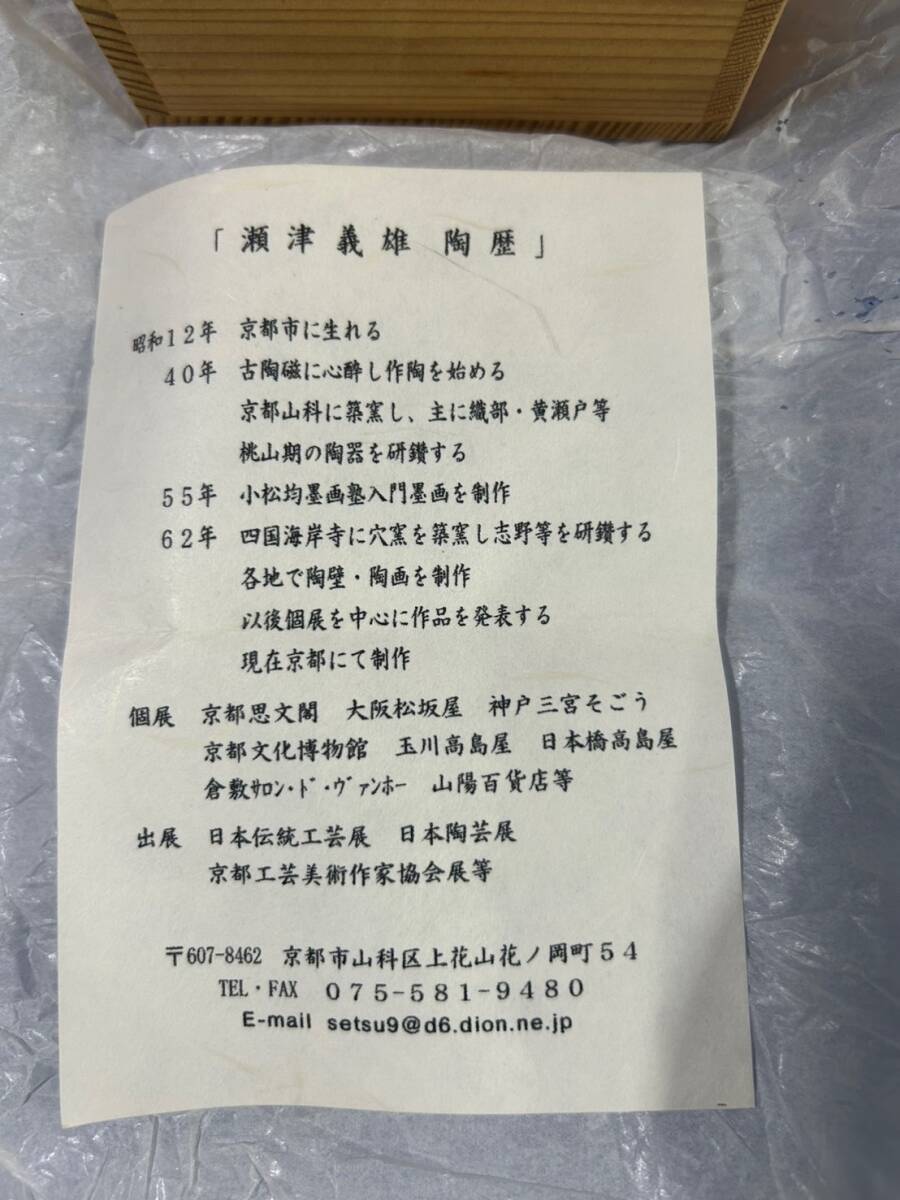 「瀬津義雄 陶歴」
昭和12年 京都市に生れる
40年 古陶磁に心酔し作陶を始める
京都山科に築窯し、主に織部・黄瀬戸等
桃山期の陶器を研鑽する
55年 小松均墨画塾入門墨画を制作
62年 四国海岸寺に穴窯を築窯し志野等を研鑽する
各地で陶壁・陶画を制作
以後個展を中心に作品を発表する
現在京都にて制作
個展 京都思文閣 大阪松坂屋 神戸三宮そごう
京都文化博物館 玉川高島屋 日本橋高島屋
倉敷ｻﾛﾝ･ﾄﾞ･ｳﾞｧﾝﾎｰ 山陽百貨店等
出展 日本伝統工芸展 日本陶芸展
京都工芸美術作家協会展等
〒607-8462 京都市山科区上花山花ノ岡町54
TEL・FAX 075-581-9480
E-mail setsu9@d6.dion.ne.jp